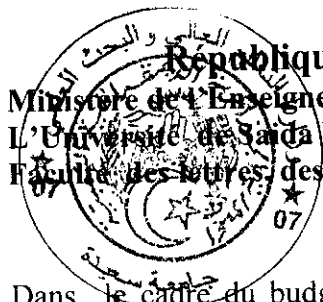 République
Ministère de l'Enseigne
L'Université de Saida
Faculté des lettres, des
العالي و البحث
07
07
جامعة سعيدة
Dans le cadre du budg